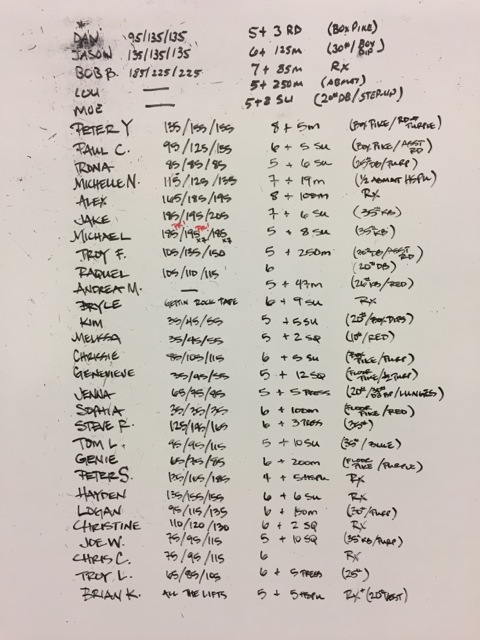 DAN 95/135/135 5 + 3 RD (BOX PIKE)
JASON 135/135/135 6 + 125m (30#/BOX DIP)
BOB B. 185/225/225 7 + 85m RX
LOU — 5 + 250m (ABMAT)
MOE — 5+8 SU (20# DB/STEP-UP)
PETER Y 135/155/155 8 + 5m (BOX PIKE/RD+PURPLE)
PAUL C. 95/125/135 6 + 5 SU (BOX PIKE/ASST RD)
RONA 85/85/85 5 + 6 SU (25# DB/PURP)
MICHELLE N. 115/125/135 7 + 19m (1/2 ABMAT HSPU)
ALEX 165/185/195 8 + 100m RX
JAKE 185/195/205 7 + 6 SU (35# KB)
MICHAEL 185/195/185 PR! PR! x7 x7 5 + 8 SU (35# KB)
TROY F. 105/135/150 5 + 250m (30# DB/ASST RD)
RAQUEL 105/110/115 6 (20# DB)
ANDREA M. — 5 + 47m (26# DB/RED)
BRYLE GETTIN ROCK TAPE 6 + 9 SU RX
KIM 35/45/55 5 + 5 SU (20#/BOX DIPS)
MELISSA 35/45/55 5 + 2 SQ (10#/RED)
CHRISSIE 85/105/115 6 + 5 SU (PIKE/PURP)
GENEVIEVE 35/45/55 5 + 12 SQ (FLOOR PIKE/PURP)
JENNA 65/75/85 5 + 5 PRESS (20# /LUNGES)
SOPHIA 35/35/35 6 + 100m (FLOOR PIKE/RED)
STEVE R. 125/145/165 6 + 3 PRESS (35#)
TOM L. 95/95/115 5 + 10 SU (35#/BLUE)
GENIE 65/75/85 6 + 200m (FLOOR PIKE/PURPLE)
PETER S. 135/165/185 4 + 5 HSPU RX
HAYDEN 135/155/155 6 + 6 SU RX
LOGAN 95/115/135 6 + 150m (30#/PURP)
CHRISTINE 110/120/130 6 + 2 SQ RX
JOE W. 75/95/115 5 + 10 SQ (35# KB/PURP)
CHRIS C. 75/95/115 6 RX
TROY L. 65/85/105 6 + 5 PRESS (25#)
BRIAN K. ALL THE LIFTS 5 + 5 HSPU RX+ (20# VEST)